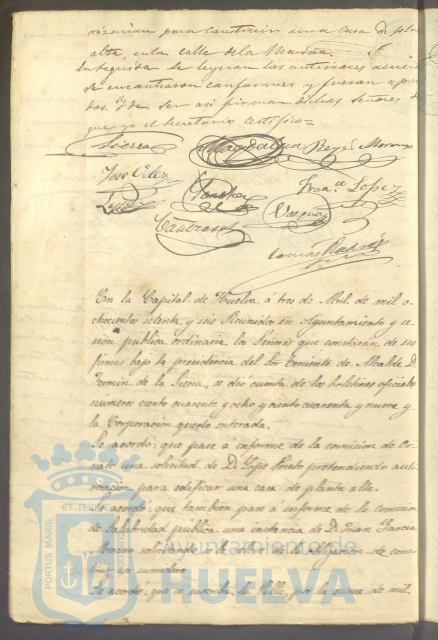 para construir una casa de
alta, en la calle de la Marina.
Enseguida se leyeron las anteriores
se encontraron conformes y fueron
y de ser así firman dichos Señores
que yo el Secretario certifico=
Sierra
Reyes Moreno
José Velez
Sanchez
Fran.co Lopez
Vazquez
En la Capital de Huelva á tres de Abril de mil o-
chocientos setenta y seis Reunidos en Ayuntamiento y se-
sión pública ordinaria, los Señores que constarán de sus
firmas bajo la presidencia del Sor Teniente de Alcalde D.
Fermin de la Sierra, se dió cuenta de los boletines oficiales
numeros ciento cuarenta y ocho y ciento cuarenta y nueve y
la Corporacion quedó enterada.
Se acordó: que pase á informe de la comision de Or-
nato una solicitud de D. José Prieto pretendiendo auto-
rizacion para edificar una casa de planta alta.
Se acordó: que tambien pase á informe de la comision
de Salubridad publica una instancia de D. Juan Garcia
solicitando se le alce la obligacion de cons-
truir un sumidero
Se acordó: que se por la suma de mil
PORTUS MARIS ET TERRÆ
Ayuntamiento de
HUELVA